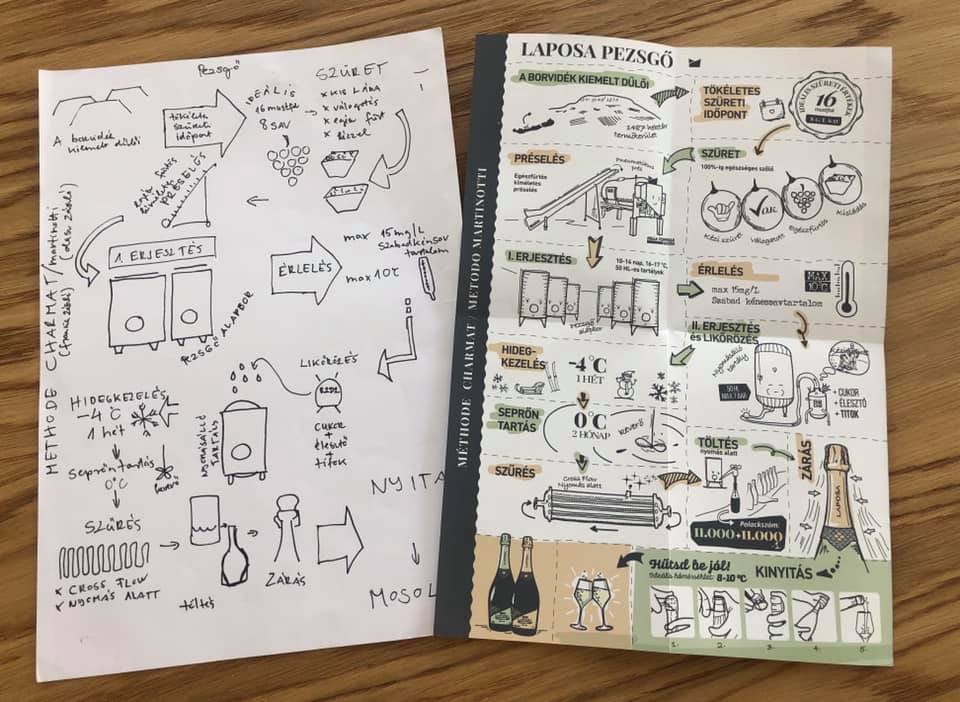 Pezsgő
A borvidék
kiemelt dűlői
tökéletes
szüreti
időpont
IDEÁLIS
16 mustfok
8 SAV
SZÜRET
x KIS LÁDA
x válogatás
x egész fürt
x kézzel
egész fürtös
kíméletes
PRÉSELÉS
METHODE CHARMAT / martinotti
(francia zászló) (olasz zászló)
1. ERJESZTÉS
PEZSGŐ ALAPBOR
ÉRLELÉS
max 15 mg/L
szabadkénsav
tartalom
max 10°C
LIKŐRÖZÉS
CUKOR
+
élesztő
+
titok
NYOMÁSÁLLÓ
TARTÁLY
HIDEGKEZELÉS
-4°C
1 hét
Seprőn tartás
0°C
keverő
SZŰRÉS
x CROSS FLOW
x NYOMÁS ALATT
töltés
ZÁRÁS
NYITÁ
MOSOL
LAPOSA PEZSGŐ
MÉTHODE CHARMAT / METODO MARTINOTTI
A BORVIDÉK KIEMELT DŰLŐI
2487 hektár
termőterület
TÖKÉLETES
SZÜRETI
IDŐPONT
IDEÁLIS SZÜRETI ÉRTÉKEK
16
mustfok
PRÉSELÉS
Egészfürtös
kíméletes
préselés
Pneumatikus
prés
SZÜRET
100%-ig egészséges szőlő
O.K.
Kézi szüret
Válogatott
Egészfürtös
Kisládás
I. ERJESZTÉS
10-14 nap, 16-17 °C,
50 HL-es tartályok
Pezsgő
alapbor
ÉRLELÉS
max 15mg/L
Szabad kénessavtartalom
MAX
10°C
II. ERJESZTÉS
és LIKŐRÖZÉS
Nyomásálló
tartály
50 HL
MAX 7 BAR
+ CUKOR
+ ÉLESZTŐ
+ TITOK
HIDEG-
KEZELÉS
-4°C
1 HÉT
SEPRŐN
TARTÁS
0°C
2 HÓNAP
keverő
SZŰRÉS
Cross Flow
Nyomás alatt
TÖLTÉS
nyomás alatt
Palackszám:
11.000+11.000
ZÁRÁS
LAPOSA
Hűtsd be jól!
Ideális hőmérséklet: 8-10 °C
KINYITÁS
1.
2.
3.
4.
5.